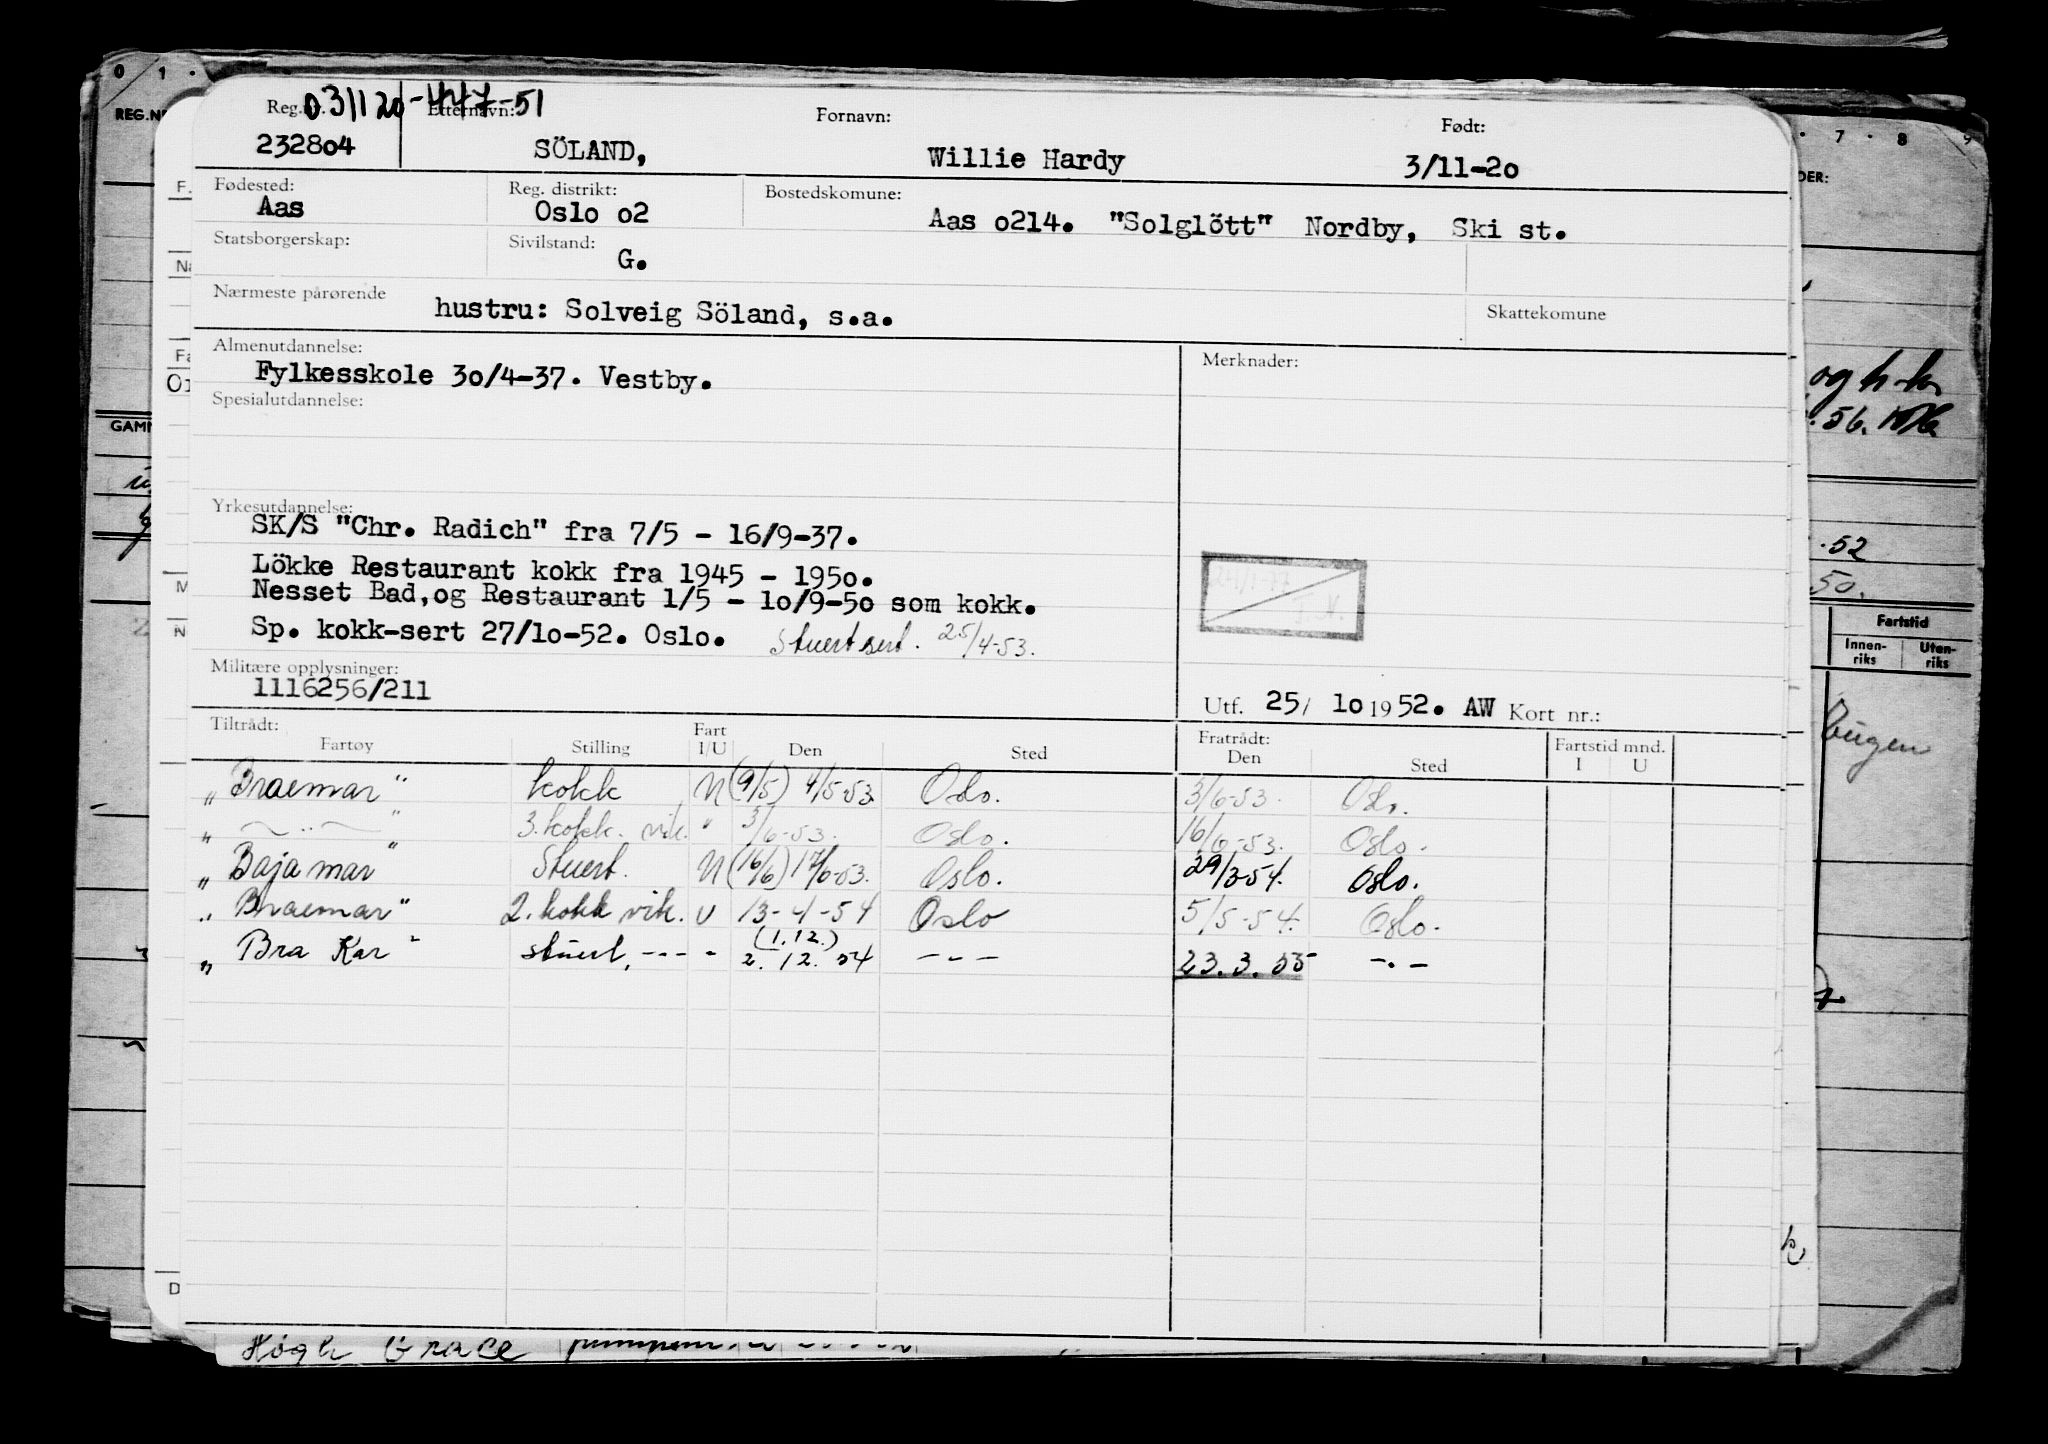 0 1 .
REG.NR
. 7 . 8 9
DER:
031120-447-51
Reg.nr. Etternavn: Fornavn: Født:
232804 SÖLAND, Willie Hardy 3/11-20
Fødested: Reg. distrikt: Bostedskomune:
Aas Oslo 02 Aas 0214. "Solglött" Nordby, Ski st.
Statsborgerskap: Sivilstand:
G.
Nærmeste pårørende Skattekomune
hustru: Solveig Söland, s.a.
Almenutdannelse: Merknader:
Fylkesskole 30/4-37. Vestby.
Spesialutdannelse:
Yrkesutdannelse:
SK/S "Chr. Radich" fra 7/5 - 16/9-37.
Lökke Restaurant kokk fra 1945 - 1950.
Nesset Bad,og Restaurant 1/5 - 10/9-50 som kokk.
Sp. kokk-sert 27/10-52. Oslo. Stuert sert. 25/4-53.
Militære opplysninger:
1116256/211
Utf. 25/ 10 1952. AW Kort nr.:
Tiltrådt: Fart Fratrådt: Fartstid mnd.
Fartøy Stilling I/U Den Sted Den Sted I U
"Braemar" kokk U (9/5) 4/5-53 Oslo. 3/6-53. Oslo.
" — " — " 3. kokk. vik. " 3/6-53. Oslo. 16/6-53. Oslo.
"Bajamar" Stuert. U (16/6) 17/6-53. Oslo. 29/3-54. Oslo.
"Braemar" 2. kokk vik. U 13-4-54 Oslo 5/5-54. Oslo.
"Bra Kar" stuert, --- - (1.12.) 2. 12. 54 - - - 23. 3. 55 - . -
og h-k
.56.
.52
50.
Fartstid
Innen-riks Uten-riks
Eugen
GAMM
Høgh Grace